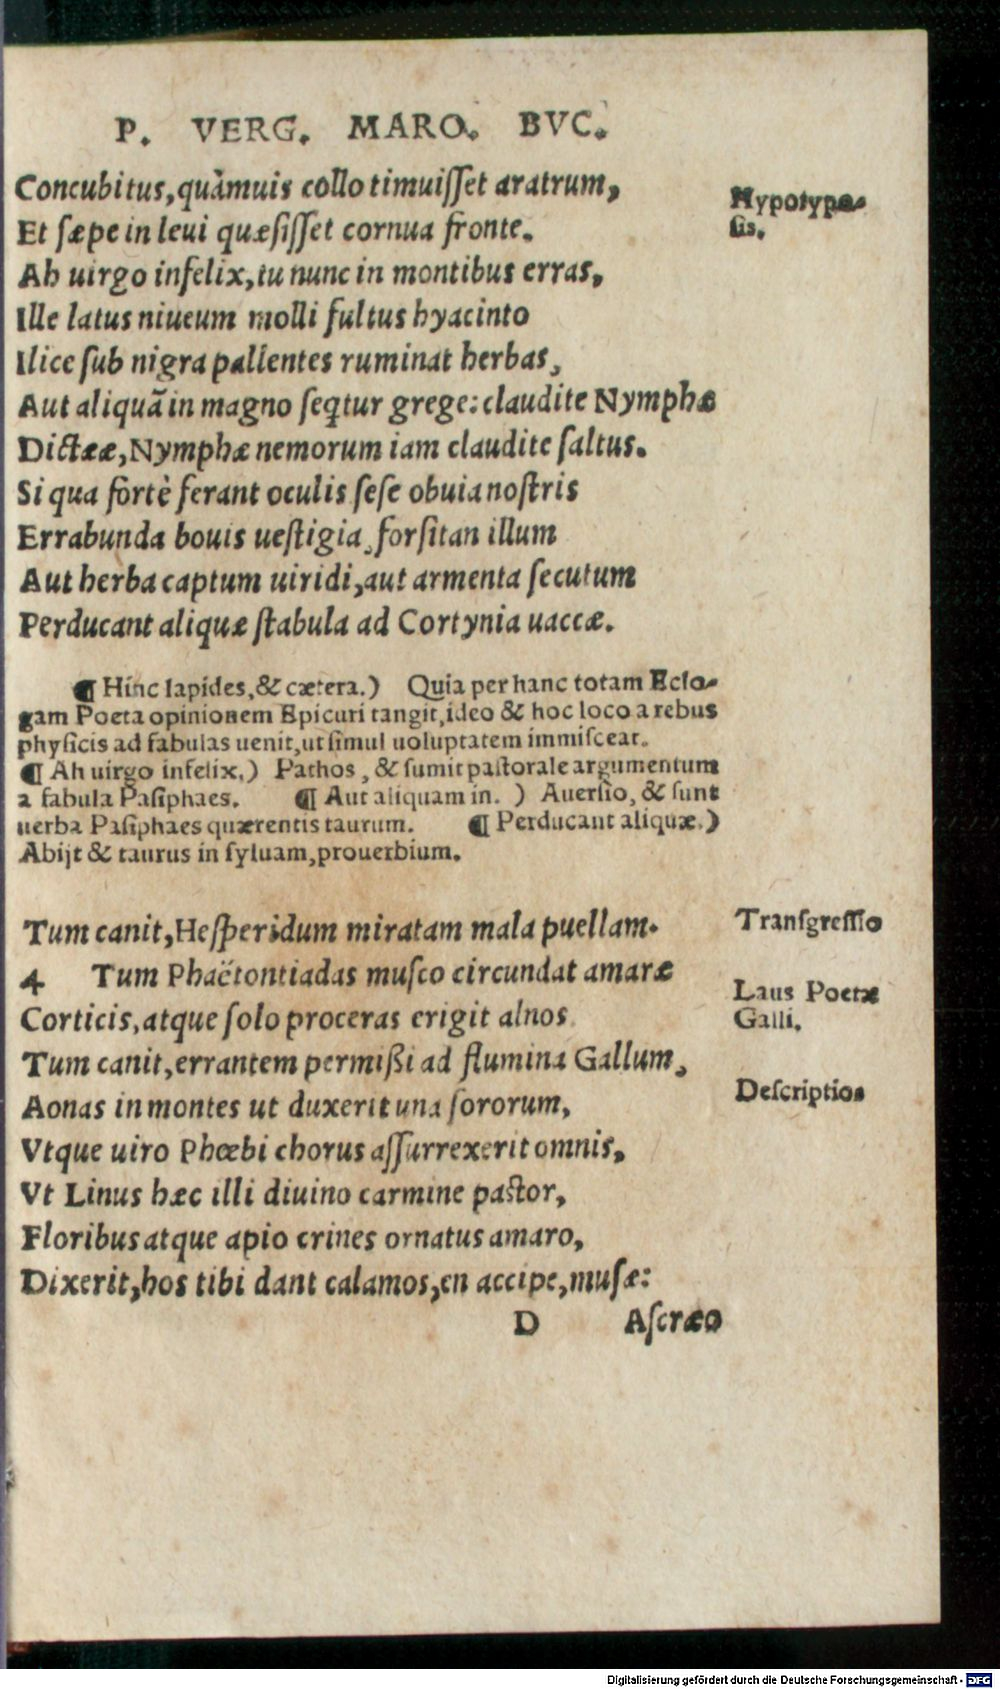 P. VERG. MARO. BVC.
Concubitus, quàmuis collo timuisset aratrum,
Et sæpe in leui quæsisset cornua fronte.
Ah uirgo infelix, tu nunc in montibus erras,
Ille latus niueum molli fultus hyacinto
Ilice sub nigra pallentes ruminat herbas,
Aut aliquã in magno seqtur grege: claudite Nymphæ
Dictææ, Nymphæ nemorum iam claudite saltus.
Si qua fortè ferant oculis sese obuia nostris
Errabunda bouis uestigia, forsitan illum
Aut herba captum uiridi, aut armenta secutum
Perducant aliquæ stabula ad Cortynia uaccæ.
Hypotypo-
sis.
¶ Hinc lapides, & cætera.) Quia per hanc totam Eclo-
gam Poeta opinionem Epicuri tangit, ideo & hoc loco a rebus
physicis ad fabulas uenit, ut simul uoluptatem immisceat.
¶ Ah uirgo infelix.) Pathos, & sumit pastorale argumentum
a fabula Pasiphaes. ¶ Aut aliquam in. ) Auersio, & sunt
uerba Pasiphaes quærentis taurum. ¶ Perducant aliquæ.)
Abijt & taurus in syluam, prouerbium.
Tum canit, Hesperidum miratam mala puellam.
4 Tum Phaëtontiadas musco circundat amaræ
Corticis, atque solo proceras erigit alnos.
Tum canit, errantem permißi ad flumina Gallum,
Aonas in montes ut duxerit una sororum,
Vtque uiro Phœbi chorus assurrexerit omnis,
Vt Linus hæc illi diuino carmine pastor,
Floribus atque apio crines ornatus amaro,
Dixerit, hos tibi dant calamos, en accipe, musæ:
Transgressio
Laus Poetæ
Galli.
Descriptios
D Ascræo
Digitalisierung gefördert durch die Deutsche Forschungsgemeinschaft - DFG